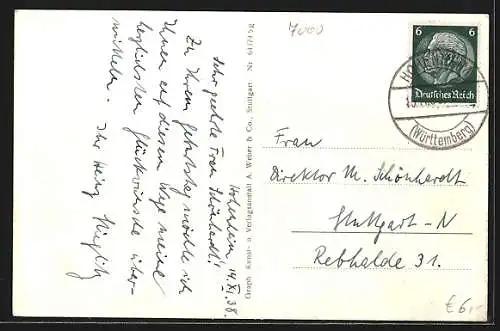 7000
6 6
Deutsches Reich
(Württemberg)
Hohenheim
14.XI.38.
Sehr geehrte Frau Schönhardt!
Zu Ihrem Geburtstag möchte ich
Ihnen auf diesem Wege meine
herzlichsten Glückwünsche über-
mitteln. Ihr Heinz
Graph. Kunst- u. Verlagsanstalt A. Weber & Co., Stuttgart Nr.
Frau
Direktor M. Schönhardt
Stuttgart-N
Rebhalde 31.
€6,-